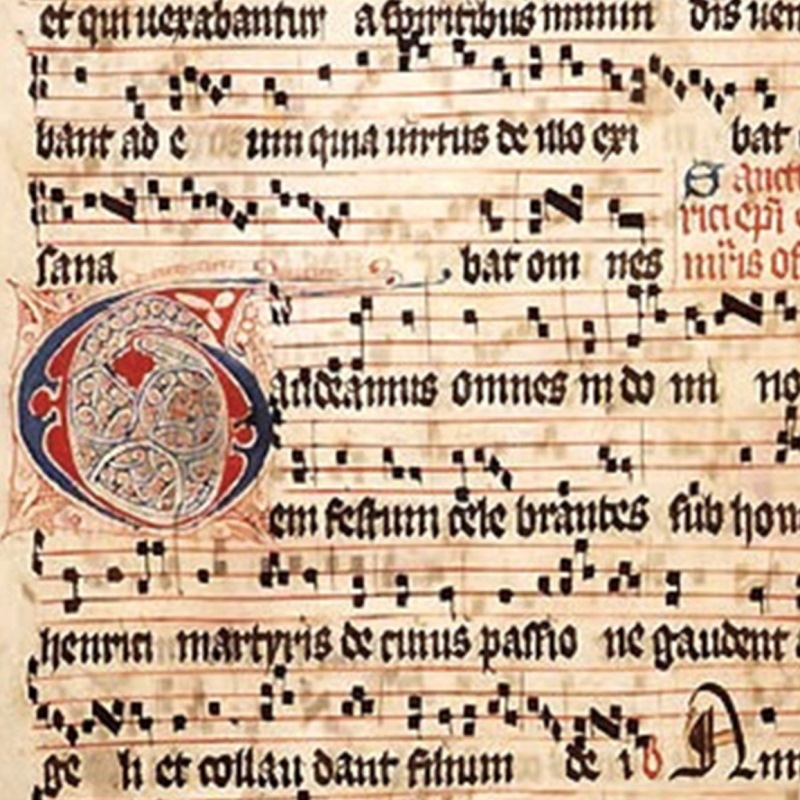 et qui uexabantur a spiritibus inmun dis uen
bant ad e um quia uirtus de illo exi bat
sana bat om nes
Sanct
rici epi
mris of
Gaudeamus omnes in do mi no
em festum cele brantes sub hon
henrici martyris de cuius passio ne gaudent
ge li et collau dant filium de i